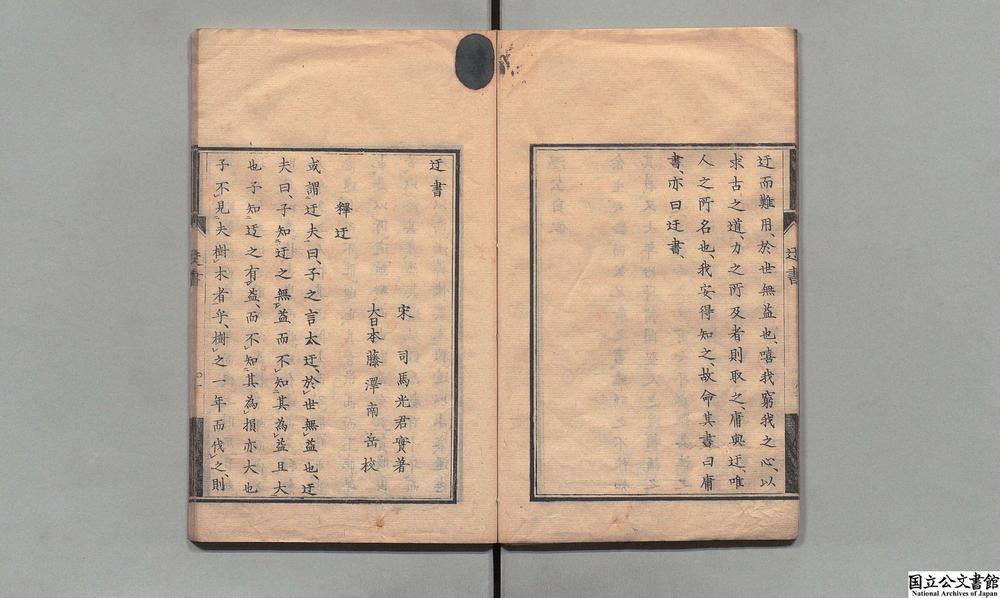 迂而難用、於世無益也、嘻我窮我之心、以
求古之道、力之所及者則取之、庸與迂、唯
人之所名也、我安得知之、故命其書曰庸
書、亦曰迂書、
迂書
迂書
宋　司馬光君實著
大日本藤澤南岳校
釋迂
或謂迂夫曰、子之言太迂、於世無益也、迂
夫曰、子知迂之無益而不知其為益且大
也子知迂之有益、而不知其為損亦大也
子不見夫樹木者乎、樹之一年而伐之、則
迂書
国立公文書館
National Archives of Japan